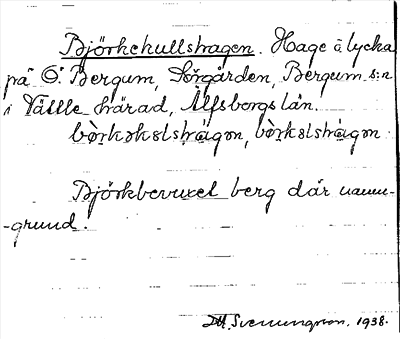 Björkekullshagen. Hage å lycka
på Ö. Bergum, Sörgården, Bergum s:n
i Vättle härad, Älfsborgs län.
bo̊rkokslshàgon, bòrkslshàgon
Björkbevuxel berg där namn-
-grund.
D.H. Svenungson. 1938.